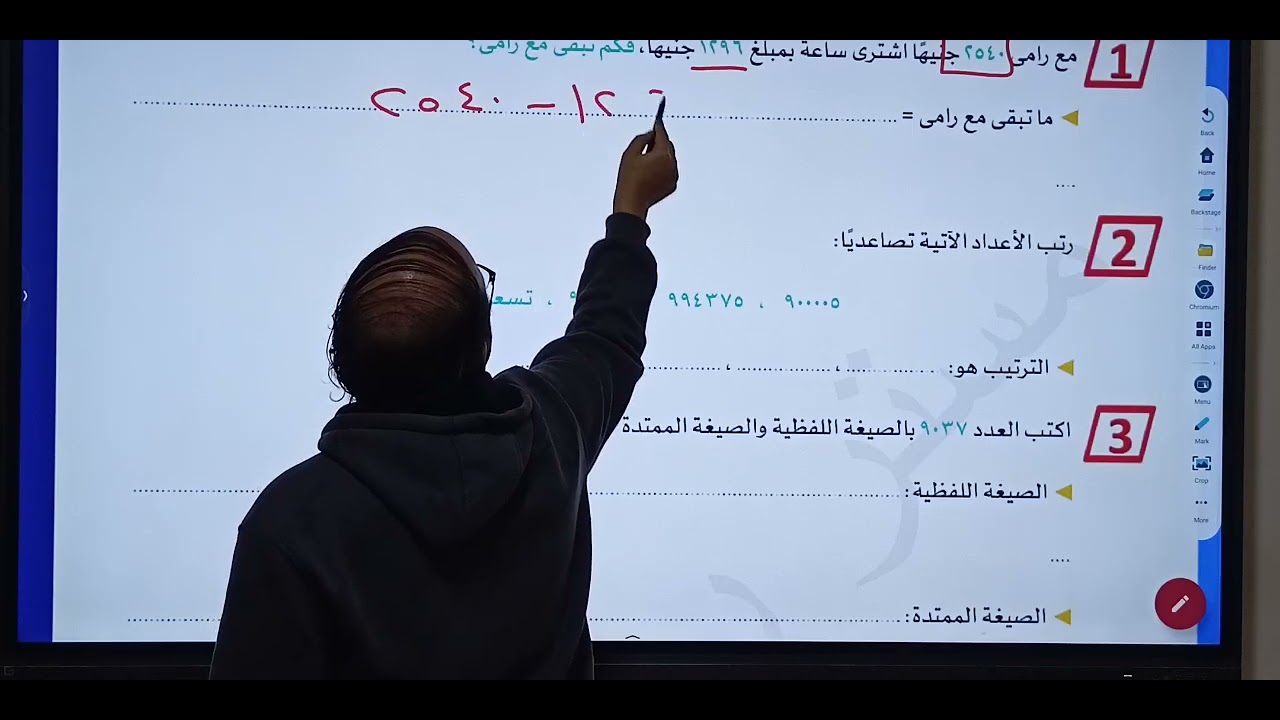 1 مع رامى ٢٥٤٠ جنيهًا اشترى ساعة بمبلغ ١٢٩٦ جنيهًا، فكم تبقى مع رامى؟
ما تبقى مع رامى = ....................
٢٥٤٠ - ١٢
....
2 رتب الأعداد الآتية تصاعديًا:
٩٠٠٠٠٥ ، ٩٩٤٣٧٥ ، تسع
الترتيب هو: ................ ، ................ ،
3 اكتب العدد ٩٠٣٧ بالصيغة اللفظية والصيغة الممتدة
الصيغة اللفظية: ....................
....
الصيغة الممتدة: ....................
مستر
Back
Home
Backstage
Finder
Chromium
All Apps
Menu
Mark
Crop
More